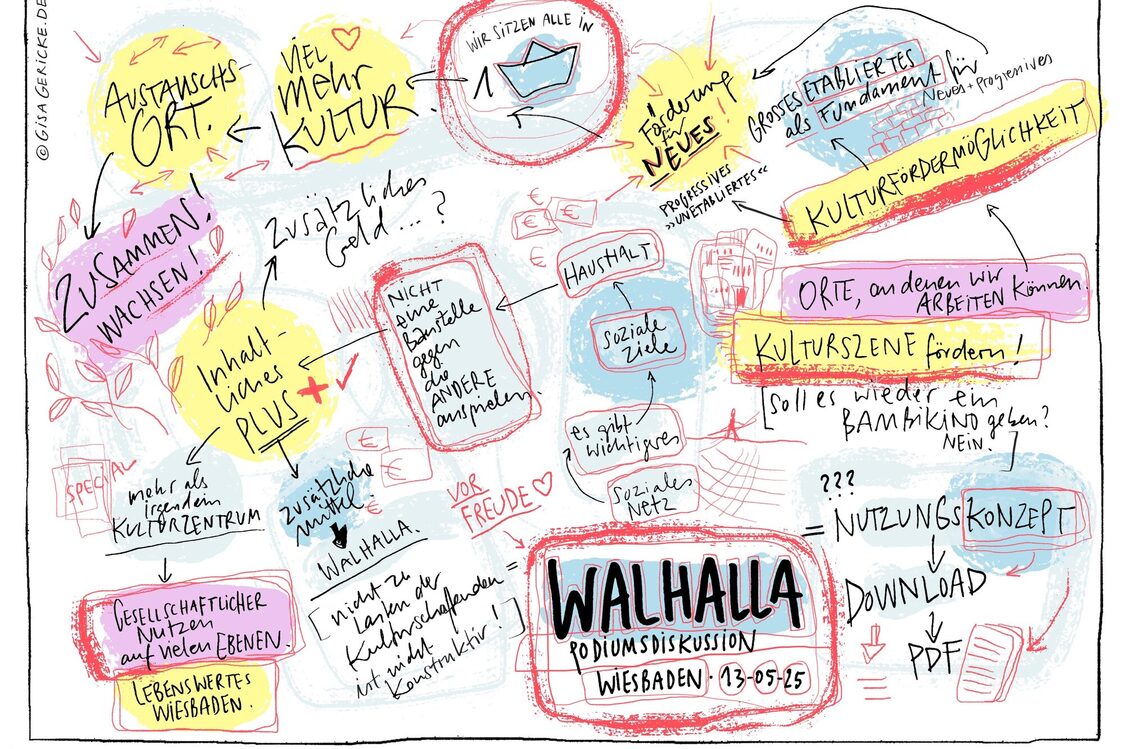 © GISA GERICKE.DE
AUSTAUSCHS-
ORT.
VIEL
MEHR
KULTUR
WIR SITZEN ALLE IN
1
Förderung
für
NEUES!
GROSSES ETABLIERTES
als FUNDAMENT für
NEUES + PROGRESSIVES
KULTURFÖRDERMÖGLICHKEIT
PROGRESSIVES
»UNETABLIERTES«
ZUSAMMEN!
WACHSEN!
ZUSÄTZLICHES
Geld...?
NICHT
eine
Baustelle
gegen
die
ANDERE
ausspielen.
HAUSHALT
€
€
€
soziale
Ziele
es gibt
wichtigeres
Soziales
NETZ
ORTE, an denen wir
ARBEITEN können.
KULTURSZENE fördern!
[soll es wieder ein
BAMBIKINO geben?
NEIN.]
Inhalt-
liches
PLUS
+
SPECIAL
mehr als
irgendein
KULTURZENTRUM
zusätzliche
mittel.
€
€
€
WALHALLA.
[nicht zu
Lasten der
Kulturschaffenden
ist nicht
konstruktiv!]
GESELLSCHAFTLICHER
Nutzen
auf vielen EBENEN.
LEBENSWERTES
WIESBADEN.
VOR
FREUDE
=
WALHALLA
PODIUMSDISKUSSION
WIESBADEN · 13-05-25
???
= NUTZUNGSKONZEPT
DOWNLOAD
PDF